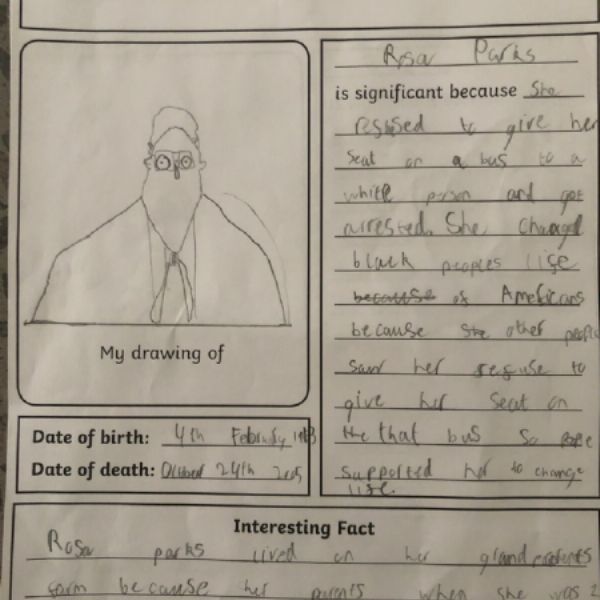 My drawing of
Date of birth: 4th February 1913
Date of death: October 24th 2005
Rosa Parks
is significant because She
resused to give her
seat on a bus to a
white person and got
arrested. She changed
black peoples lise
because of Americans
because she other people
saw her resuse to
give her seat on
the that bus so
supported her to change
lise.
Interesting Fact
Rosa parks lived on her
sarm because her parents when she was 2